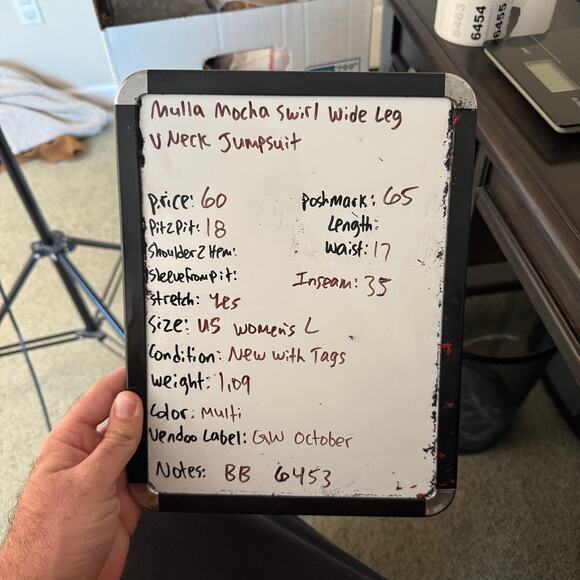 Mulla Mocha Swirl Wide Leg
V Neck Jumpsuit
price: 60
poshmark: 65
Pit2Pit: 18
Length:
Shoulder2Hem:
Waist: 17
Sleevefrompit:
Inseam: 35
stretch: Yes
Size: US Women's L
Condition: New with Tags
weight: 1.09
Color: Multi
Vendoo Label: GW October
Notes: BB 6453
6463
6454
6455